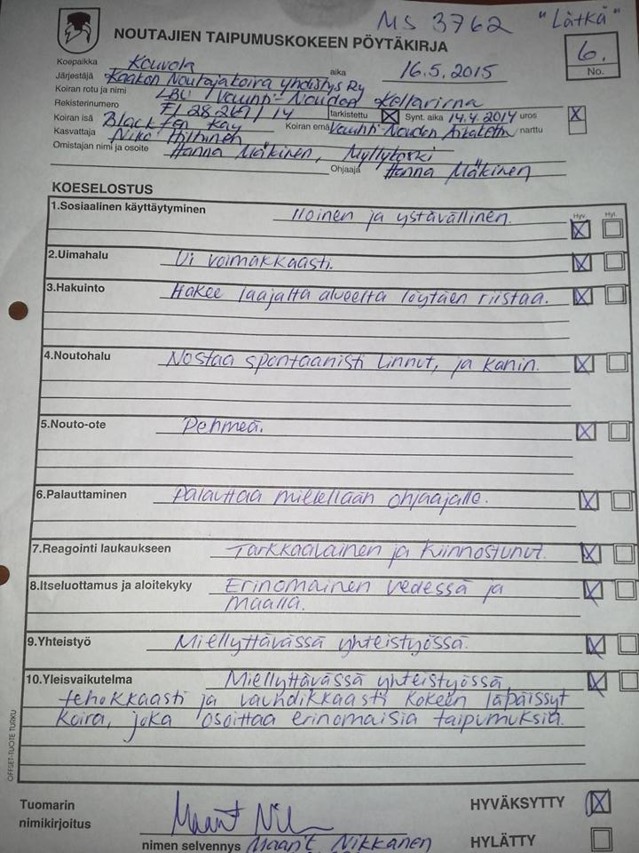 MS 3762 "Lätkä"
NOUTAJIEN TAIPUMUSKOKEEN PÖYTÄKIRJA
6.
No.
Koepaikka Kouvola aika 16.5.2015
Järjestäjä Kaakon Noutajakoira yhdistys Ry
Koiran rotu ja nimi LBU / Vauhti-Noudon Kellaririna
Rekisterinumero FI 28269/14 tarkistettu X Synt. aika 14.4.2014 uros X
Koiran isä Black Fen Kay Koiran emä Vauhti Noudon narttu
Kasvattaja Niko Hyttinen
Omistajan nimi ja osoite Hanna Mäkinen, Myllykoski
Ohjaaja Hanna Mäkinen
KOESELOSTUS
Hyv. Hyl.
1.Sosiaalinen käyttäytyminen Iloinen ja ystävällinen. X
2.Uimahalu Ui voimakkaasti. X
3.Hakuinto Hakee laajalta alueelta löytäen riistaa. X
4.Noutohalu Nostaa spontaanisti linnut, ja kanin. X
5.Nouto-ote Pehmeä. X
6.Palauttaminen Palauttaa mielellään ohjaajalle. X
7.Reagointi laukaukseen Tarkkaavainen ja kiinnostunut. X
8.Itseluottamus ja aloitekyky Erinomainen vedessä ja X
maalla.
9.Yhteistyö Miellyttävässä yhteistyössä. X
10.Yleisvaikutelma Miellyttävässä yhteistyössä X
tehokkaasti ja vauhdikkaasti kokeen läpäissyt
koira, joka osoittaa erinomaisia taipumuksia.
OFFSET-TUOTE TURKU
Tuomarin HYVÄKSYTTY X
nimikirjoitus
nimen selvennys Maarit Nikkanen HYLÄTTY